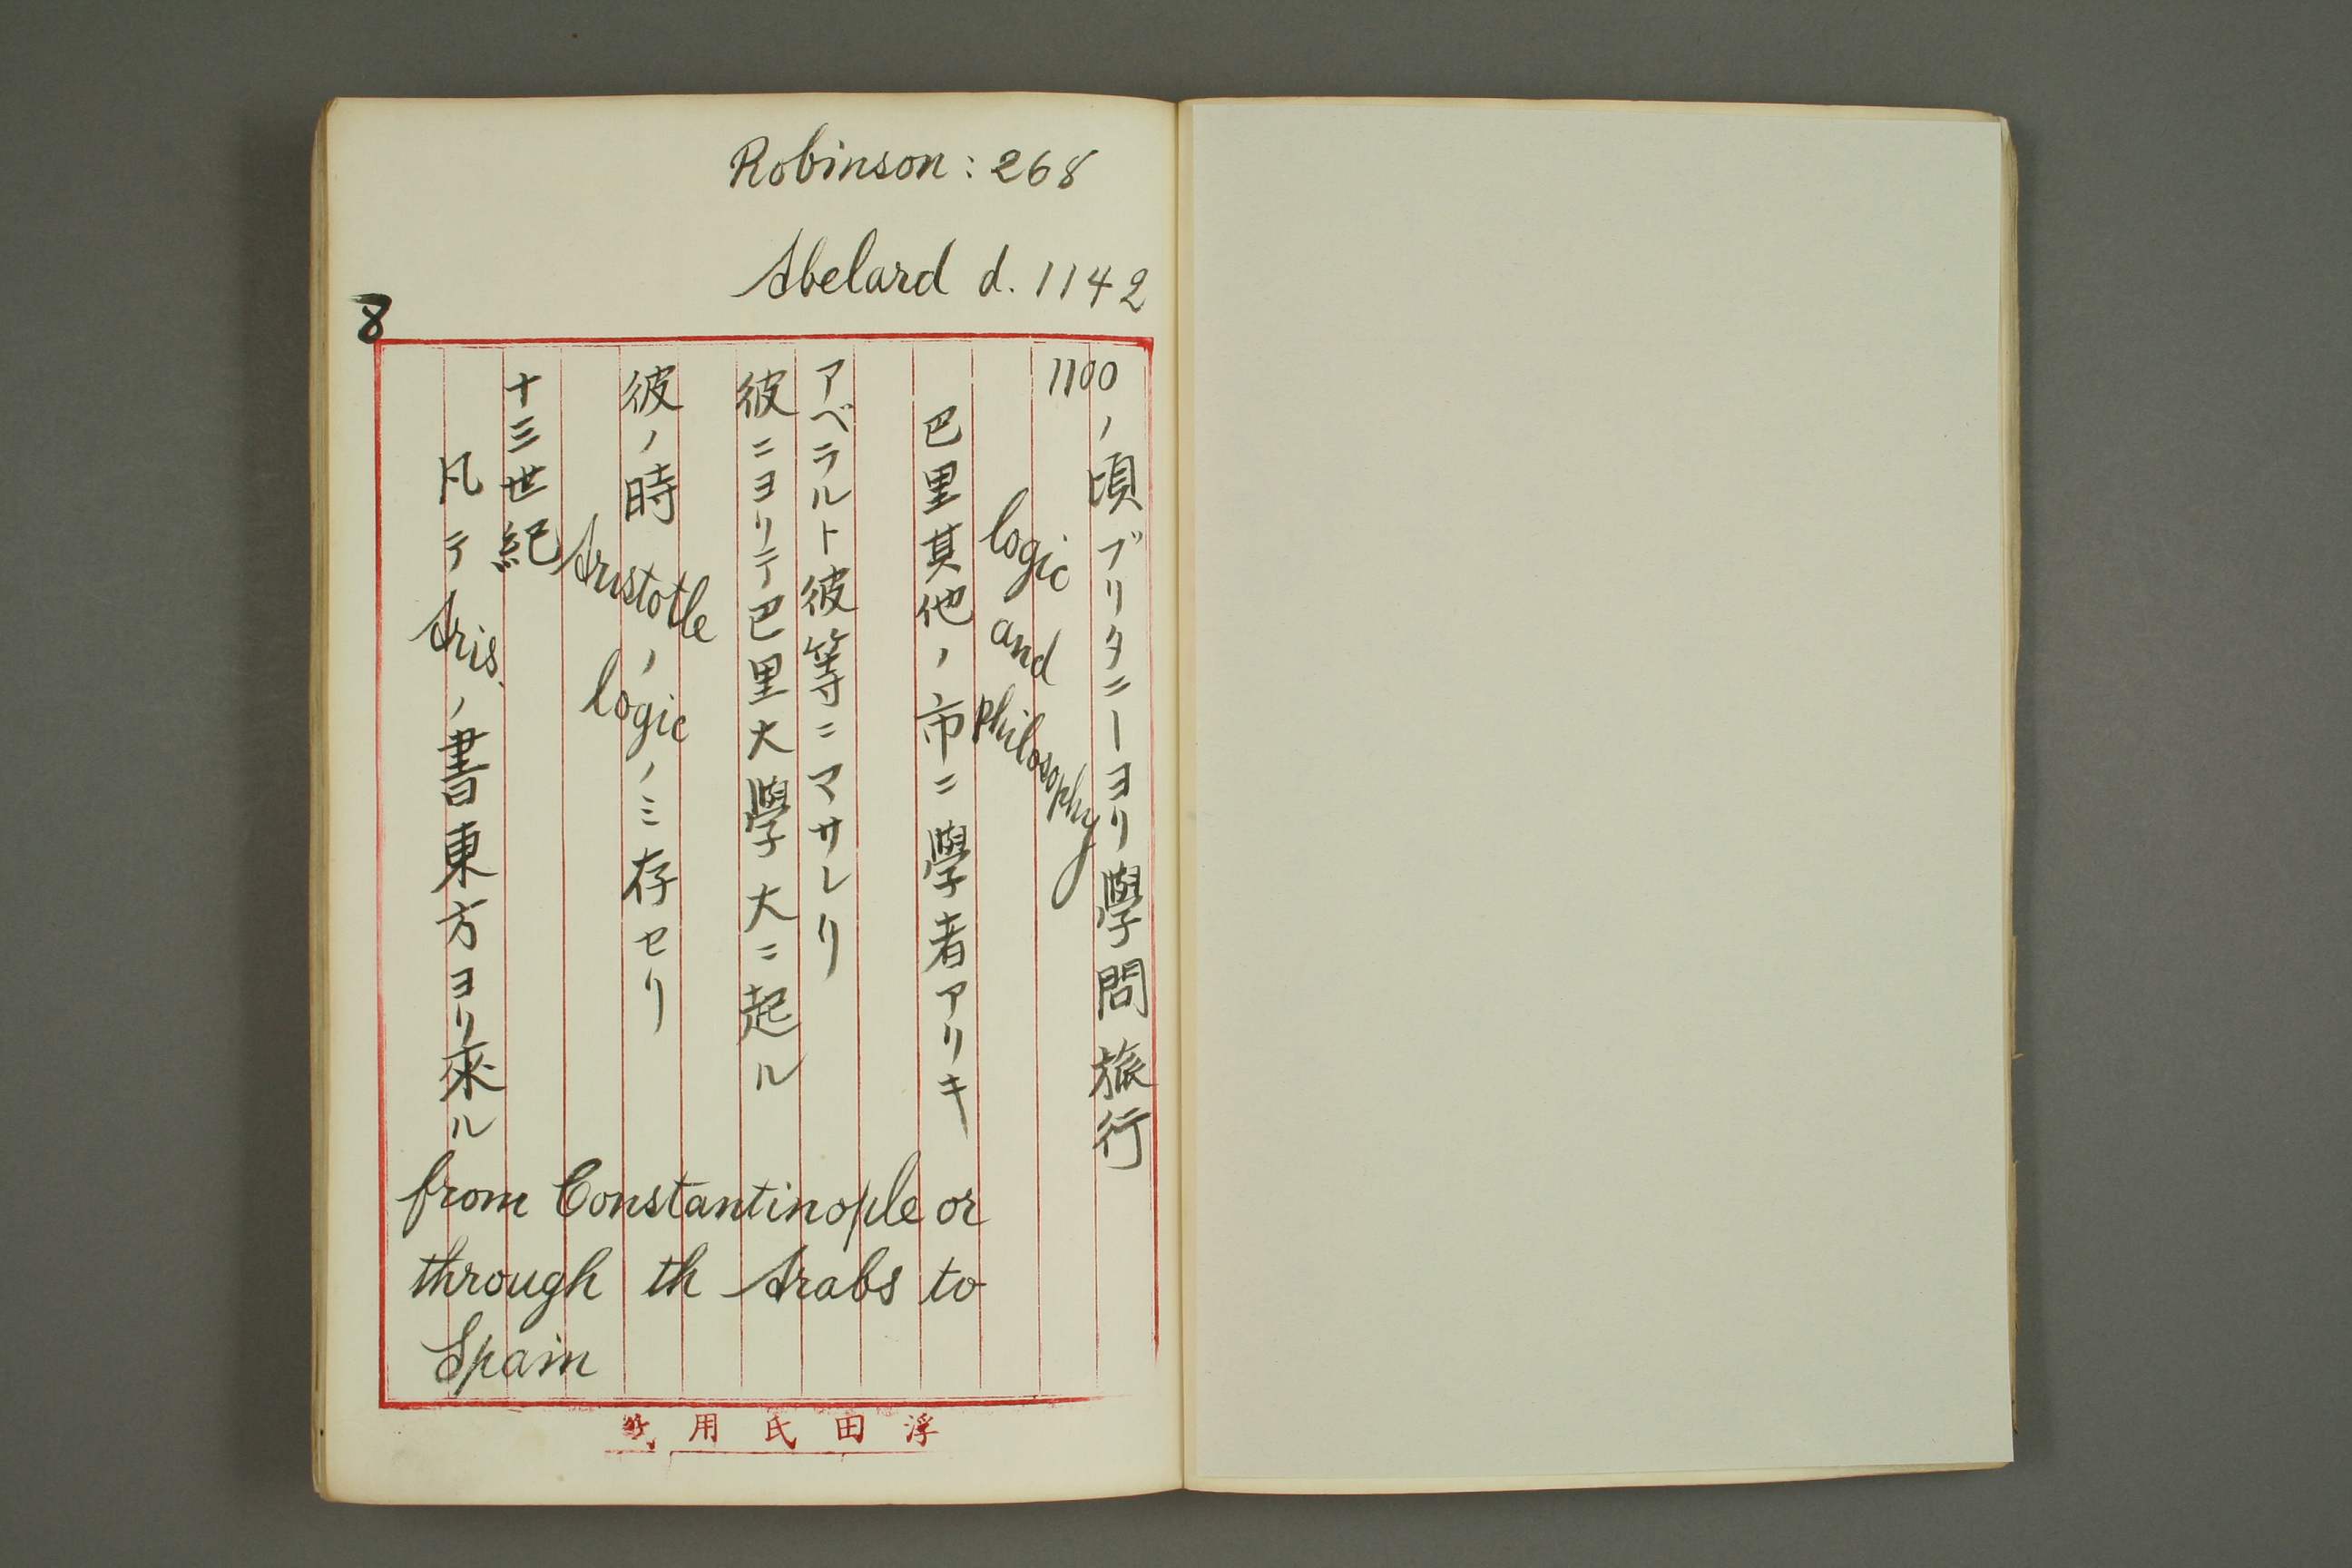 Robinson: 268
Abelard d. 1142
8
1100ノ頃ブリタニーヨリ學問旅行
logic and philosophy
巴里其他ノ市ニ學者アリキ
アベラルト彼等ニマサレリ
彼ニヨリテ巴里大學大ニ起ル
彼ノ時Aristotleノlogicノミ存セリ
十三世紀
凡テAris.ノ書東方ヨリ來ル
from Constantinople or
through th Arabs to
Spain
浮田氏用